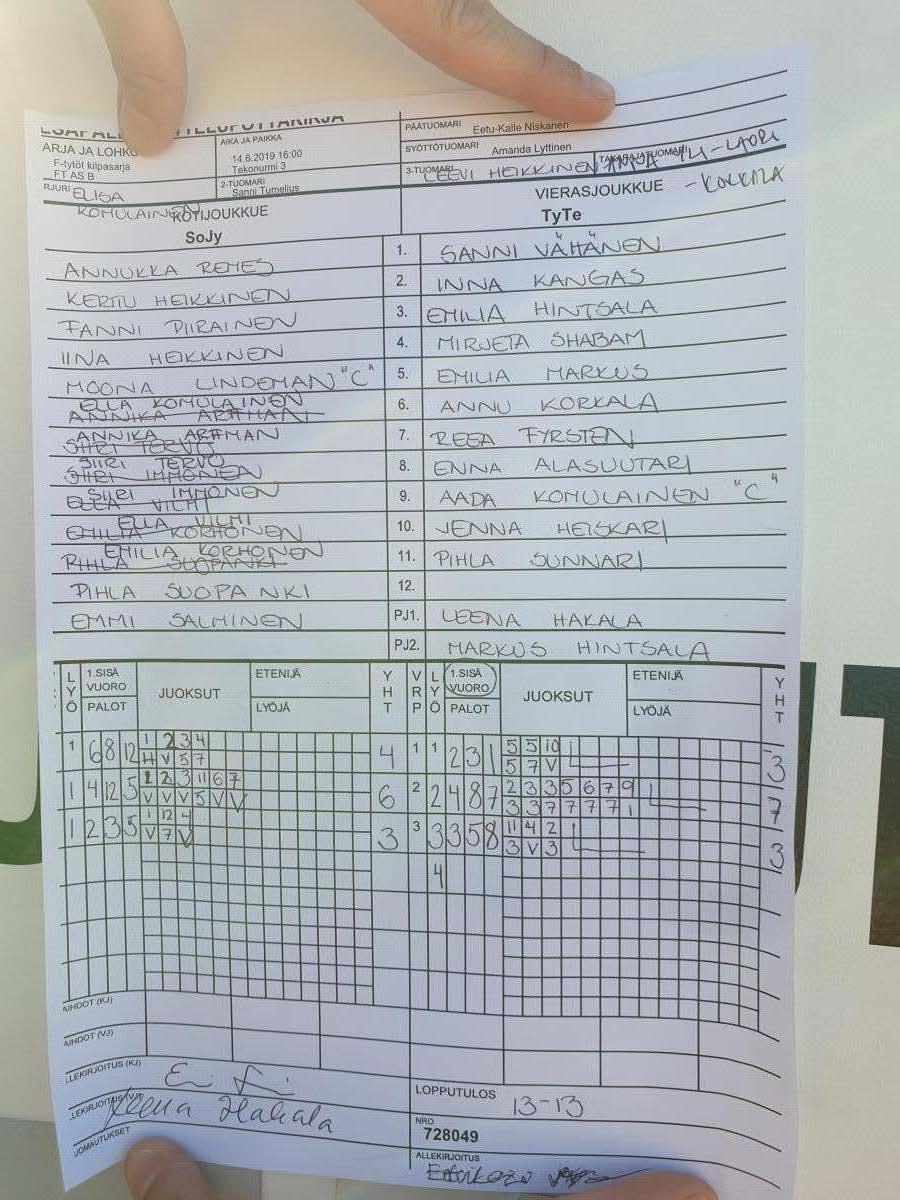 PÄÄTUOMARI Eetu-Kalle Niskanen
ARJA JA LOHKO
F-tytöt kilpasarja
FT AS B
AIKA JA PAIKKA
14.6.2019 16:00
Tekonurmi 3
SYÖTTÖTUOMARI Amanda Lyttinen
RJURI ELISA KOMULAINEN
2-TUOMARI
Sanni Tumelius
3-TUOMARI LEEVI HEIKKINEN
TAKARAJATUOMARI
KOTIJOUKKUE
SoJy
VIERASJOUKKUE
TyTe
ANNUKKA REMES 1. SANNI VÄHÄNEN
KERTTU HEIKKINEN 2. INNA KANGAS
FANNI PIIRAINEN 3. EMILIA HINTSALA
IINA HEIKKINEN 4. MIRJETA SHABAM
MOONA LINDEMAN "C" 5. EMILIA MARKUS
ELLA KOMULAINEN 6. ANNU KORKALA
ANNIKA ARTTMAN 7. REEA FYRSTEN
SIIRI TERVO 8. ENNA ALASUUTARI
SIIRI IMMONEN 9. AADA KOMULAINEN "C"
ELLA VILMI 10. JENNA HEISKARI
EMILIA KORHONEN 11. PIHLA SUNNARI
PIHLA SUOPANKI 12.
EMMI SALMINEN PJ1. LEENA HAKALA
PJ2. MARKUS HINTSALA
LYÖ 1.SISÄ VUORO PALOT JUOKSUT ETENIJÄ LYÖJÄ YHT VRP LYÖ 1.SISÄ VUORO PALOT JUOKSUT ETENIJÄ LYÖJÄ YHT
1 6 8 12 1 2 3 4 4 1 1 2 3 1 5 5 10 3
H V 5 7 5 7 V
1 4 12 5 1 2 3 11 6 7 6 2 2 4 8 7 2 3 3 5 6 7 9 7
V V V 5 V V 3 3 7 7 7 7 1
1 2 3 5 1 12 4 3 3 3 3 5 8 11 4 2 3
V 7 V 3 V 3
4
AIHDOT (KJ)
AIHDOT (VJ)
LLEKIRJOITUS (KJ)
LEKIRJOITUS (VJ) Leena Hakala
UOMAUTUKSET
LOPPUTULOS 13-13
NRO
728049
ALLEKIRJOITUS